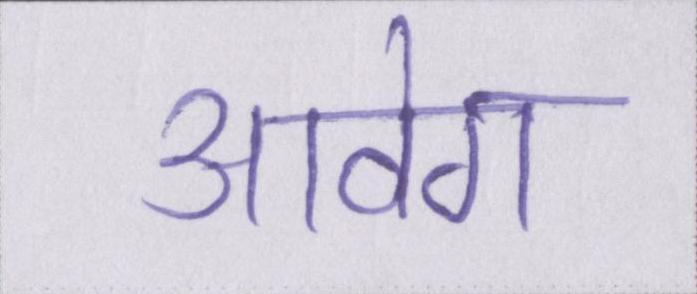 आवेग